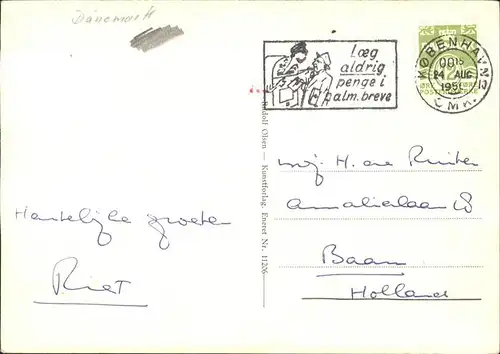 Dänemark
læg
aldrig
penge i
alm. breve
KØBENHAVN
24 AUG
195
Rudolf Olsen — Kunstforlag. Eneret Nr. 11206
Mej H. de Ruiter
Amalialaan
Baarn
Holland
Hartelijke groeten
Riet